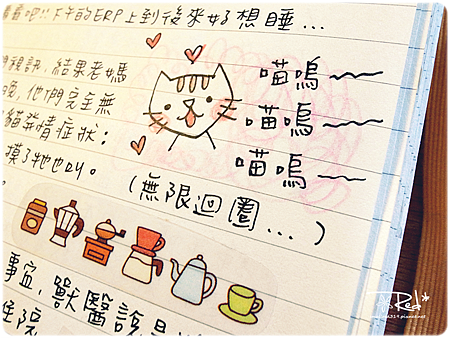 看吧!!下午的ERP上到後來好想睡...
視訊,結果老媽
晚,他們完全無
貓發情症狀:
摸了牠也叫。
喵嗚~~
喵嗚~~
喵嗚~~
(無限迴圈...)
事宜,獸醫說是
住院
Red*